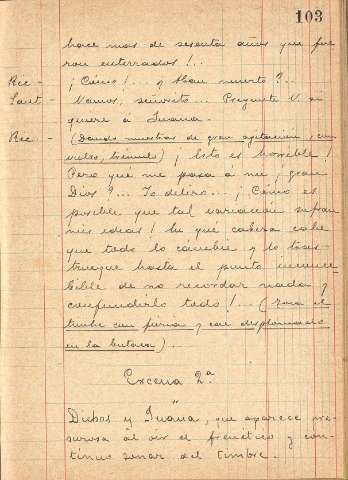 103
hace mas de sesenta años que fue
ron enterrados!..
Ric - ¡Cómo!... y Han muerto?..
Sant - Vamos, señorito... Pregunte V. si
quiere á Juana.
Ric - (Dando muestras de gran agitacion, con
vulso, trémulo) ¡Esto es horrible!
Pero que me pasa á mi, gran
Dios?... Yo deliro... ¡Cómo es
posible que tal variacion sufran
mis ideas! En que cabeza cabe
que todo lo cámbie y lo tras-
trueque hasta el punto increi
ble de no recordar nada y
confundirlo todo!... (Toca el
timbre con furia y cae desplomado
en la butaca).
Excena 2.ª
Dichos y Juana, que aparece pre
surosa al oir el frenético y con-
tínuo sonar del timbre.